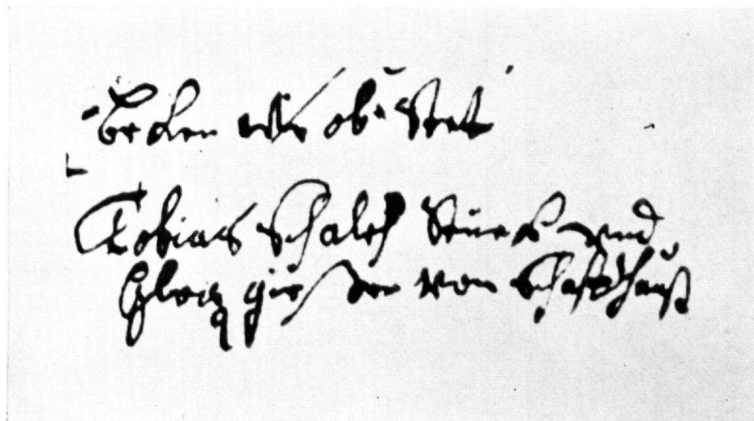 beken wie ob stet
Tobias Schalch Stuck und
Glogg giesser von Schaffhaus̄